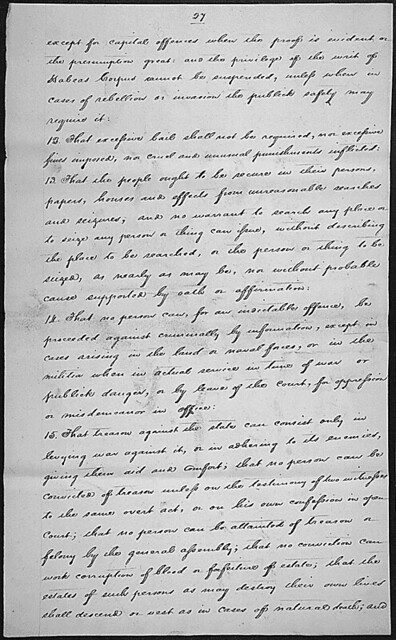 27
except for capital offences when the proof is evident or
the presumption great: and the privilege of the writ of
Habeas Corpus cannot be suspended, unless when in
cases of rebellion or invasion the publick safety may
require it:
12. That excessive bail shall not be required, nor excessive
fines imposed, nor cruel and unusual punishments inflicted:
13. That the people ought to be secure in their persons,
papers, houses and effects from unreasonable searches
and seizures; and no warrant to search any place or
to seize any person or thing can issue, without describing
the place to be searched, or the person or thing to be
seized, as nearly as may be, nor without probable
cause supported by oath or affirmation:
14. That no person can, for an indictable offence, be
proceeded against criminally by information, except in
cases arising in the land or naval forces, or in the
militia when in actual service in time of war or
publick danger, or by leave of the court, for oppression
or misdemeanor in office:
15. That treason against the state can consist only in
levying war against it, or in adhering to its enemies,
giving them aid and comfort; that no person can be
convicted of treason unless on the testimony of two witnesses
to the same overt act, or on his own confession in open
court; that no person can be attainted of treason or
felony by the general assembly; that no conviction can
work corruption of blood or forfeiture of estate; that the
estates of such persons as may destroy their own lives
shall descend or vest as in cases of natural death; and